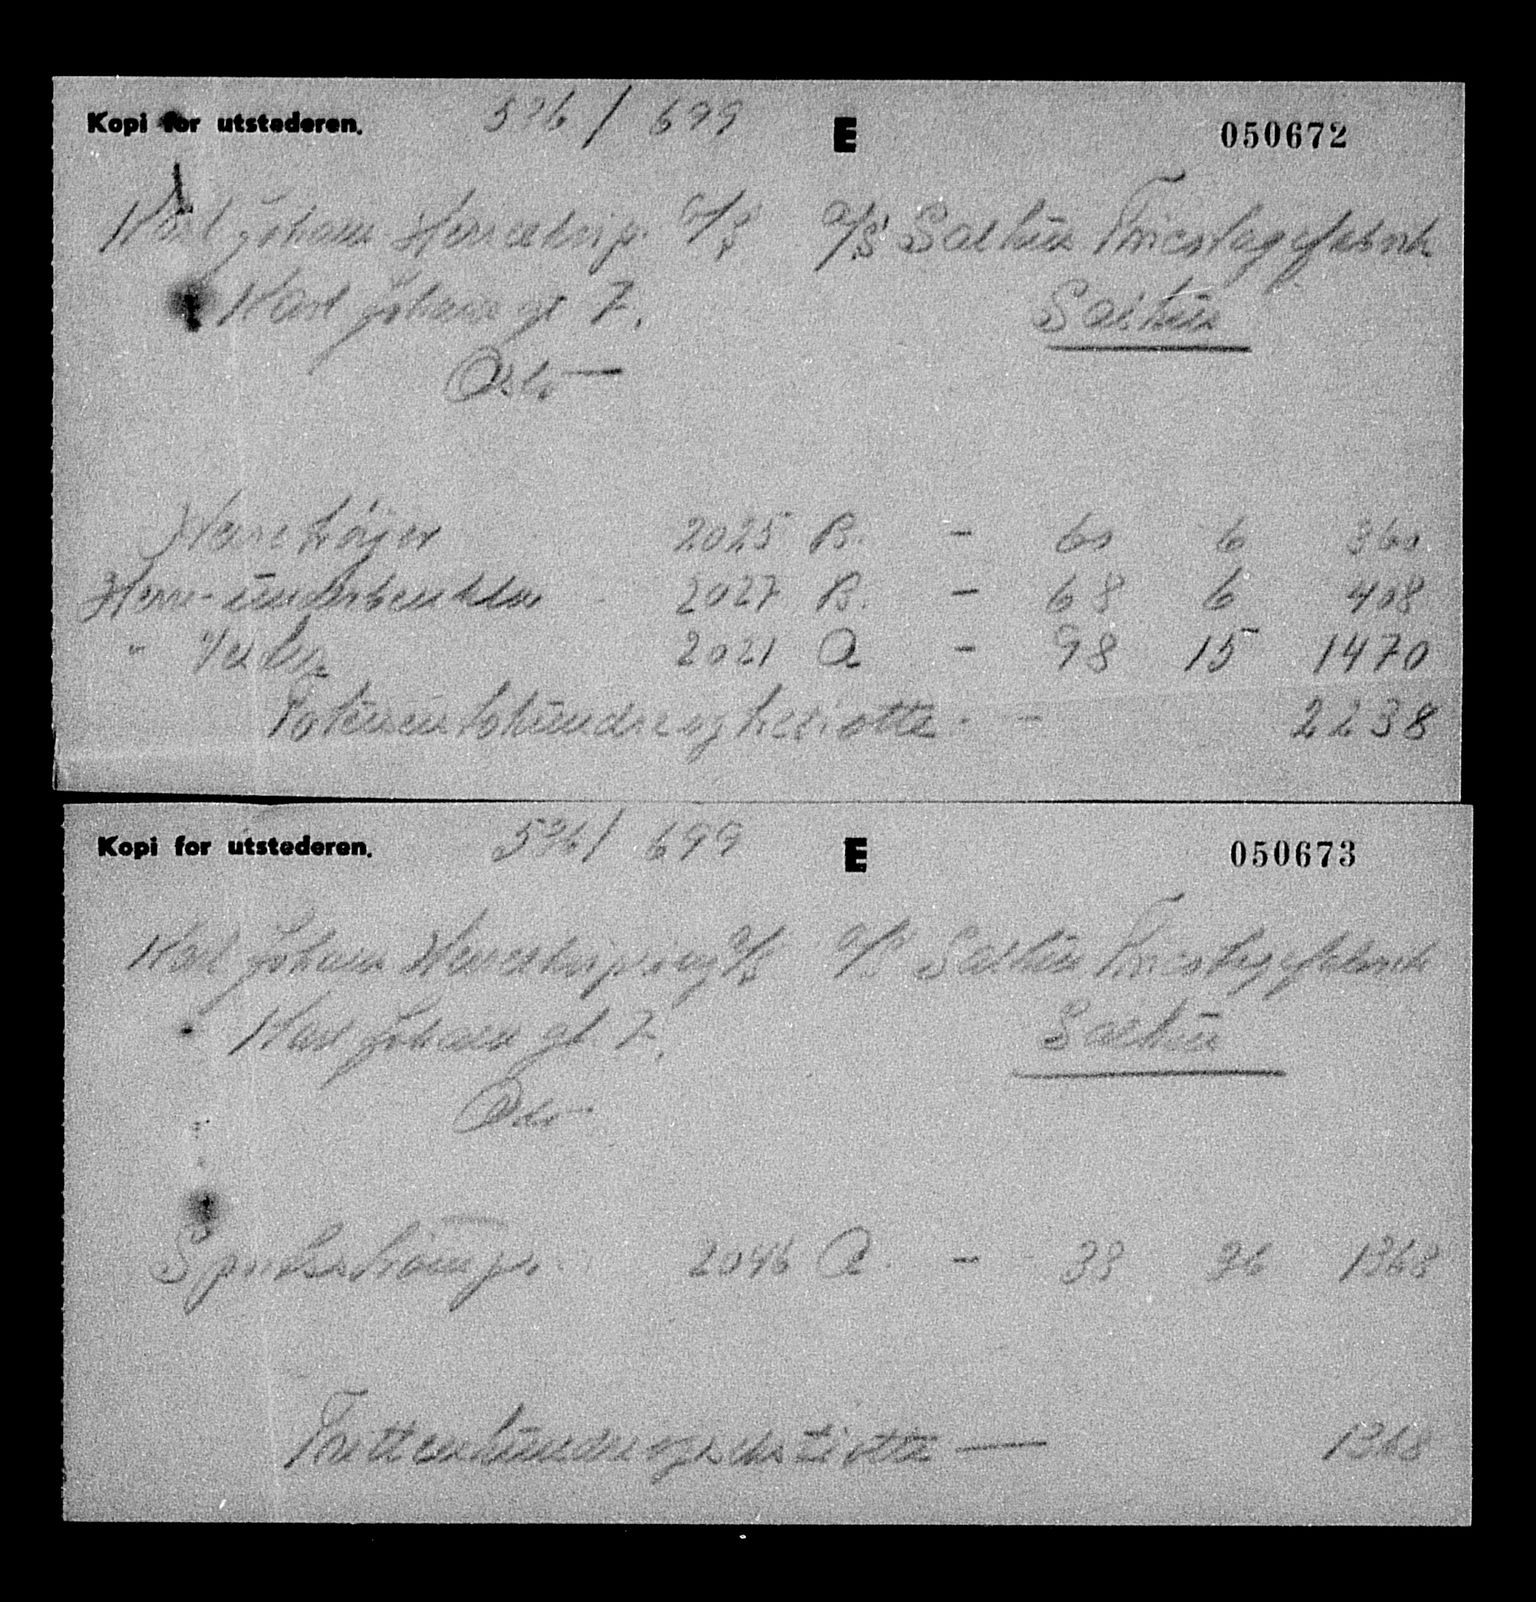 Kopi for utstederen. 536/699 E 050672
Karl Johan Herreekvip. A/S A/S Salhus Tricotagefabrik
Karl Johans gt 7. Salhus
Oslo
Herretrøjer 2025 B. - 60 6 360
Herre-underbenklær 2027 B. - 68 6 408
" 2021 A - 98 15 1470
Totusentohundreogtretiotte - 2238
Kopi for utstederen. 536/699 E 050673
Karl Johan Herreekvipering A/S A/S Salhus Tricotagefabrik
Karl Johans gt. 7. Salhus
Oslo
2046 A. - 38 36 1368
Trettenhundreogsekstiotte — 1368